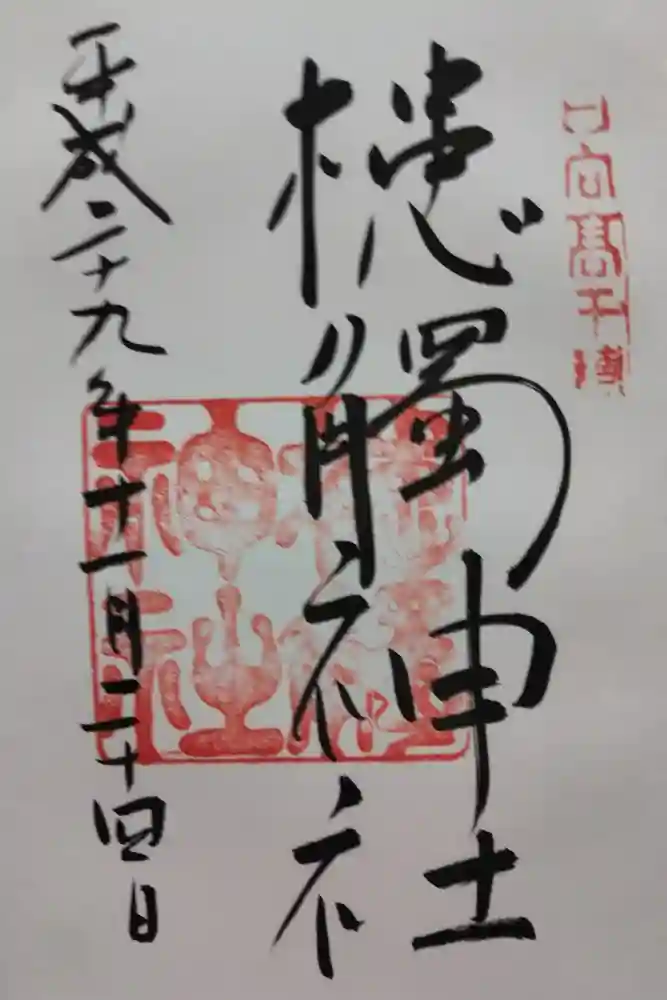 日向高千穗
槵觸神社
平成二十九年十一月二十四日
槵觸
神社